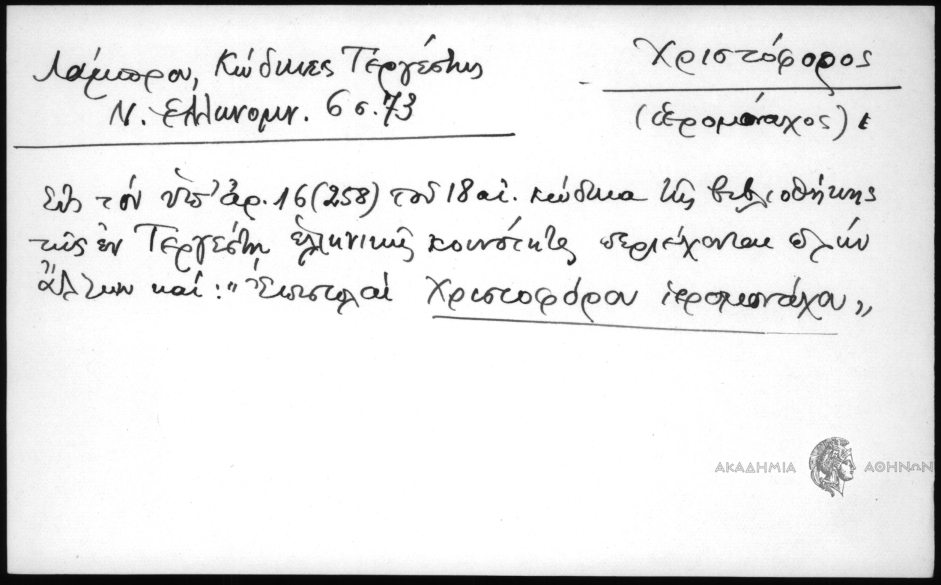 Λάμπρου, Κώδικες Τεργέστης
Ν. Ελληνομν. 6 σ. 73
Χριστόφορος
(ιερομόναχος)
Εἰς τόν ὑπ' ἀρ. 16 (258) τοῦ 18 αἰ. κώδικα τῆς βιβλιοθήκης
τῆς ἐν Τεργέστῃ ἑλληνικῆς κοινότητος περιέχονται πλήν
ἄλλων καί: "Ἐπιστολαί Χριστοφόρου ἱερομονάχου"
ΑΚΑΔΗΜΙΑ ΑΘΗΝΩΝ